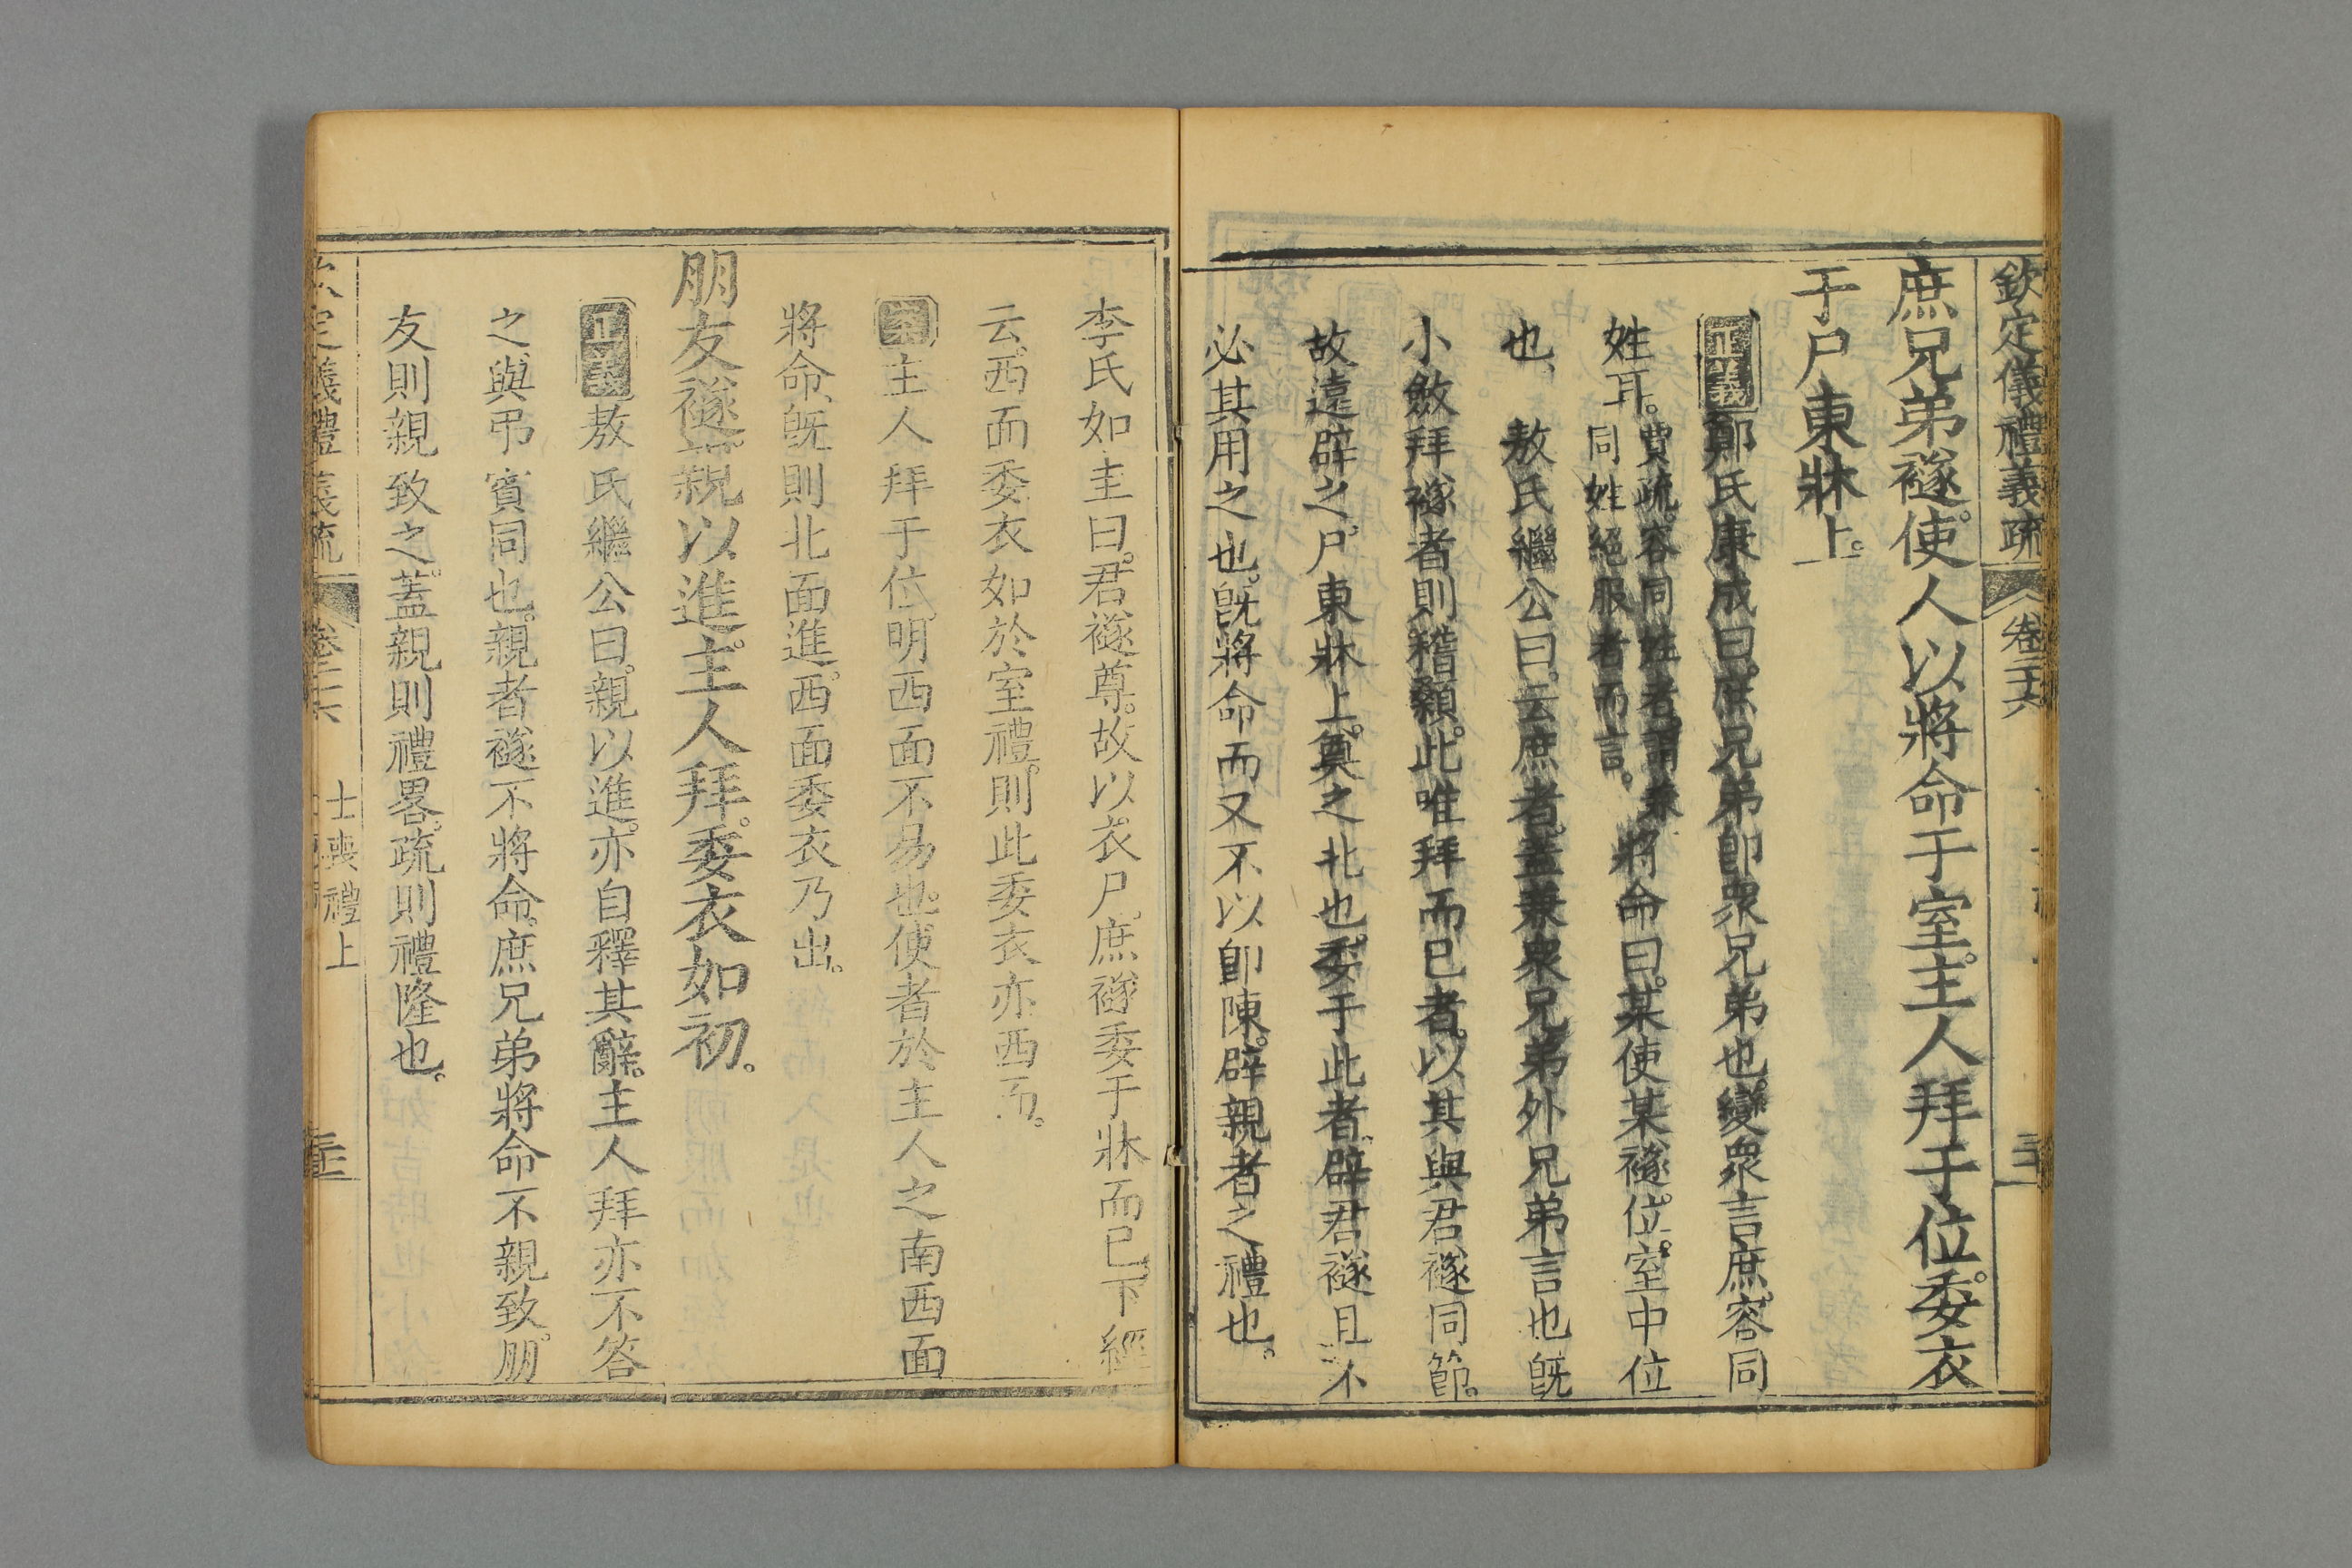 欽定儀禮義疏 卷二十六
庶兄弟襚使人以將命于室主人拜于位委衣
于尸東牀上
正義鄭氏康成曰庶兄弟卽衆兄弟也變衆言庶容同
姓耳賈疏容同姓者謂兼同姓絕服者而言將命曰某使某襚位室中位
也 敖氏繼公曰云庶者蓋兼衆兄弟外兄弟言也旣
小斂拜襚者則稽顙此唯拜而已者以其與君襚同節
故遠辟之尸東牀上奠之北也委于此者辟君襚且不
必其用之也旣將命而又不以卽陳辟親者之禮也
李氏如圭曰君襚尊故以衣尸庶襚委于牀而已下經
云西面委衣如於室禮則此委衣亦西面
案主人拜于位明西面不易也使者於主人之南西面
將命旣則北面進西面委衣乃出
朋友襚親以進主人拜委衣如初
正義敖氏繼公曰親以進亦自釋其辭主人拜亦不答
之與弔賓同也親者襚不將命庶兄弟將命不親致朋
友則親致之蓋親則禮畧疏則禮隆也
定儀禮義疏 卷二十六 士喪禮上